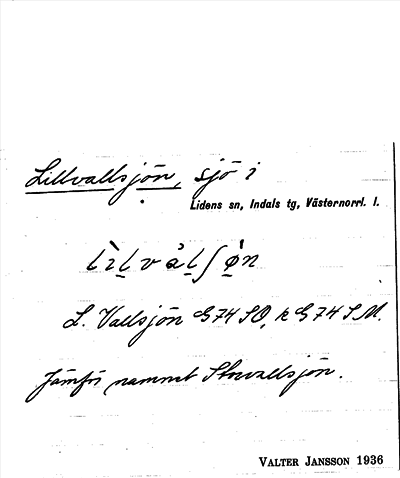 Lillvallsjön, sjö i
Lidens sn, Indals tg, Västernorrl. l.
L. Vallsjön G74 SO, k G74 S M.
Jämför namnet Storvallsjön.
VALTER JANSSON 1936